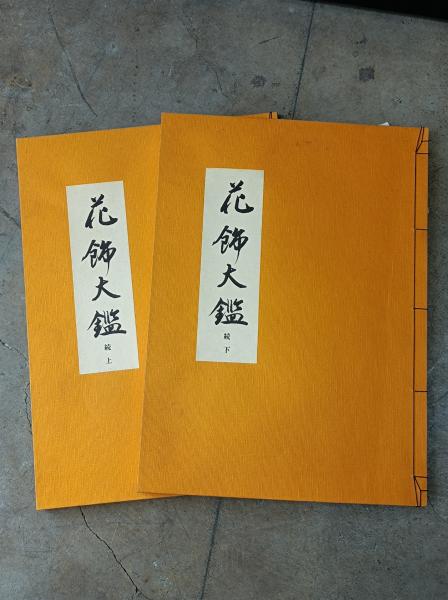 花飾大鑑
続上
花飾大鑑
続下